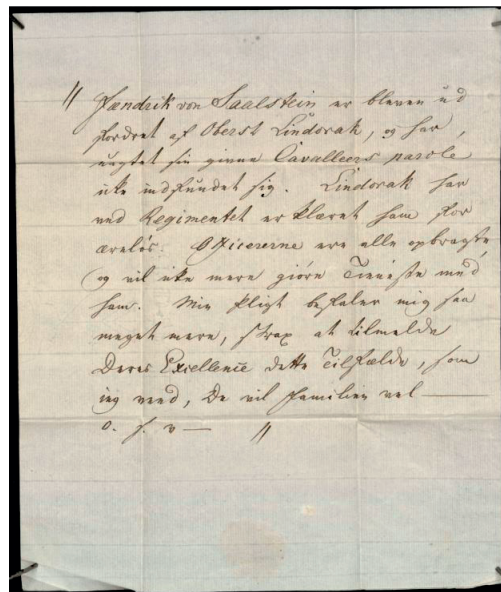 // Fændrik von Saalstein er bleven ud
fordret af Oberst Lindorak, og har,
uagtet sin givne Cavalleers parole
ikke indfundet sig. Lindorak har
ved Regimentet erklæret ham for
æreløs. Officererne ere alle opbragte,
og vil ikke mere giöre Tieneste med
ham. Min Pligt befaler mig saa
meget mere, strax at tilmelde
Deres Excellence dette Tilfælde, som
ieg veed, De vil Familien vel —
o. s. v — //